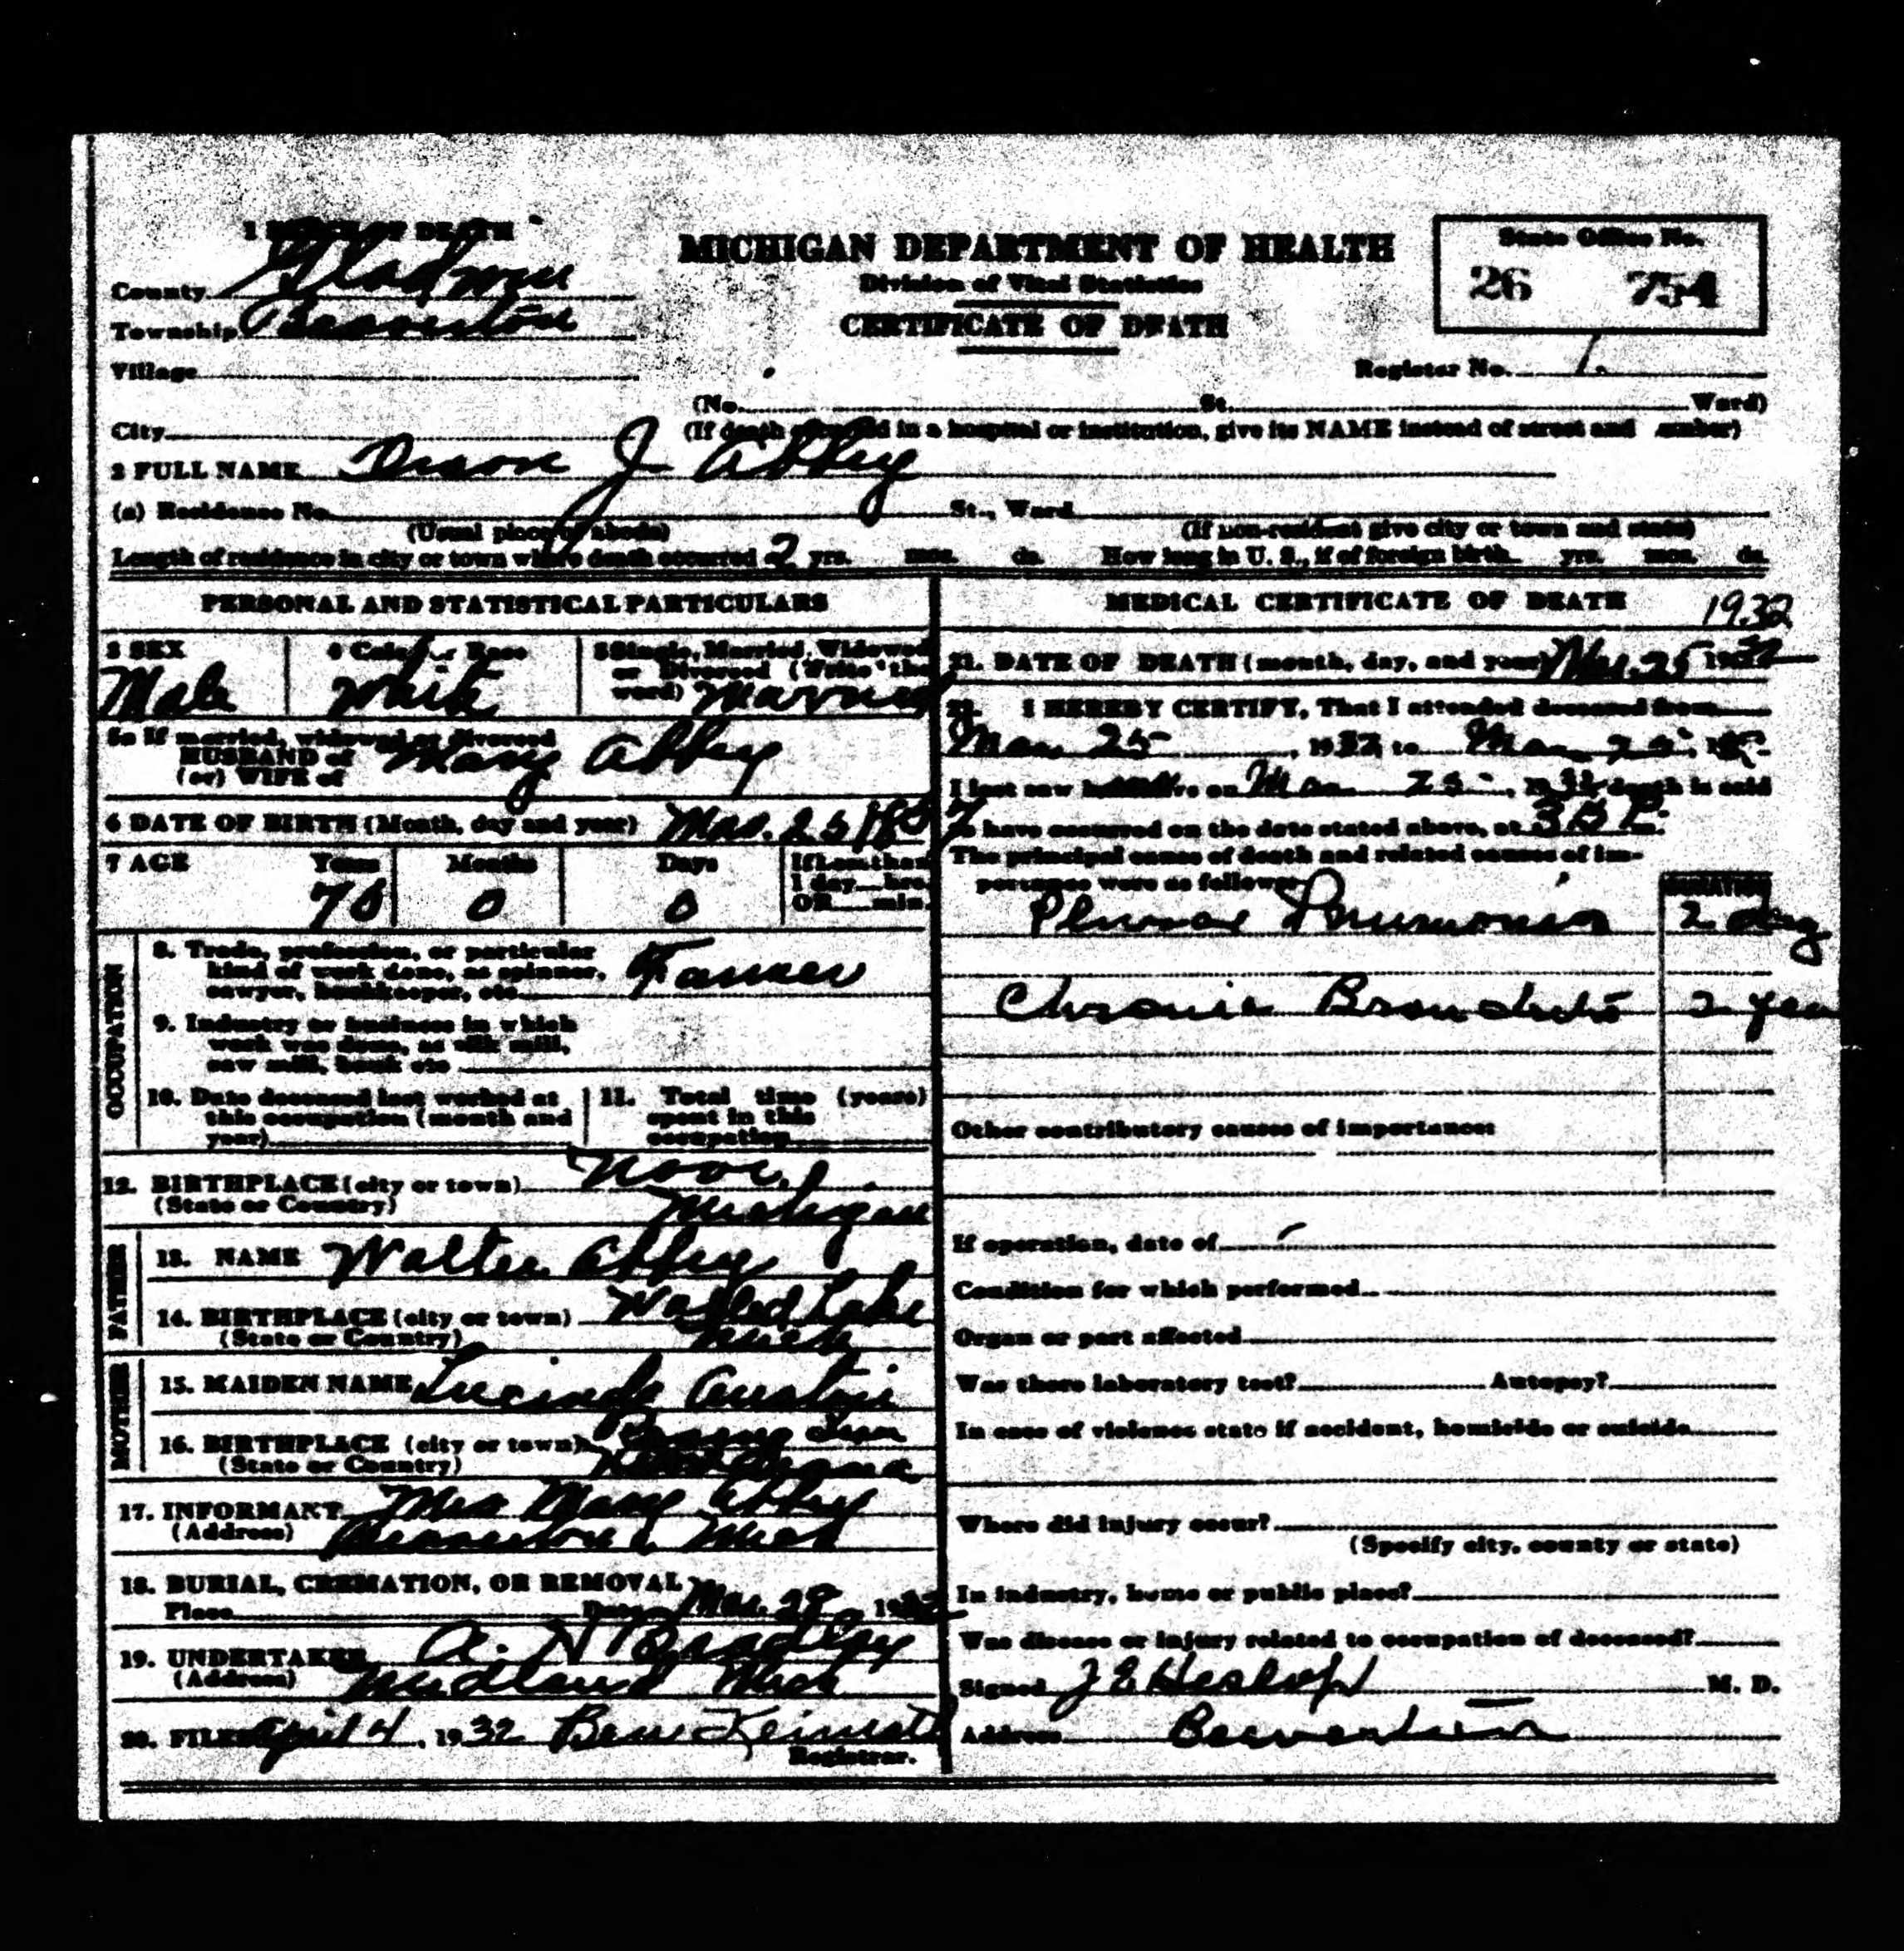 1 PLACE OF DEATH
County Gladwin
Township Beaverton
Village
City
MICHIGAN DEPARTMENT OF HEALTH
Division of Vital Statistics
CERTIFICATE OF DEATH
State Office No.
26 754
Register No. 1.
(No. St. Ward)
(If death occurred in a hospital or institution, give its NAME instead of street and number)
2 FULL NAME J Abbey
(a) Residence No. St., Ward
(Usual place of abode) (If non-resident give city or town and state)
Length of residence in city or town where death occurred 2 yrs. mos. ds. How long in U. S., if of foreign birth yrs. mos. ds.
PERSONAL AND STATISTICAL PARTICULARS
3 SEX
Male
4 Color or Race
White
5 Single, Married, Widowed
or Divorced (Write the
word) Married
5a If married, widowed or divorced
HUSBAND of
(or) WIFE of Mary Abbey
6 DATE OF BIRTH (Month, day and year) Mar. 25
7 AGE Years Months Days If Less than
1 day hrs.
OR min.
0 0
OCCUPATION
8. Trade, profession, or particular
kind of work done, as spinner,
sawyer, bookkeeper, etc. Farmer
9. Industry or business in which
work was done, as silk mill,
saw mill, bank etc
10. Date deceased last worked at
this occupation (month and
year)
11. Total time (years)
spent in this
occupation
12. BIRTHPLACE (city or town) Novi
(State or Country) Michigan
FATHER
13. NAME Walter Abbey
14. BIRTHPLACE (city or town) Walled Lake
(State or Country) Mich
MOTHER
15. MAIDEN NAME Lucinda Austin
16. BIRTHPLACE (city or town)
(State or Country)
17. INFORMANT Mrs Mary Abbey
(Address) Beaverton, Mich
18. BURIAL, CREMATION, OR REMOVAL
Place Date Mar. 28, 1932
19. UNDERTAKER A. H Bradley
(Address) Midland Mich
20. FILED April 4, 1932 Ben
Registrar.
MEDICAL CERTIFICATE OF DEATH 1932
21. DATE OF DEATH (month, day, and year) Mar. 25 1932
22. I HEREBY CERTIFY, That I attended deceased from
Mar 25, 1932 to Mar 25, 1932
I last saw h alive on Mar 25, 1932 death is said
to have occurred on the date stated above, at m.
The principal cause of death and related causes of im-
portance were as follows:
DURATION
Pneumonia 2 day
Chronic Bronchitis 2 yea
Other contributory causes of importance:
If operation, date of
Condition for which performed
Organ or part affected
Was there laboratory test? Autopsy?
In case of violence state if accident, homicide or suicide
Where did injury occur?
(Specify city, county or state)
In industry, home or public place?
Was disease or injury related to occupation of deceased?
Signed J E Heslop M. D.
Address Beaverton